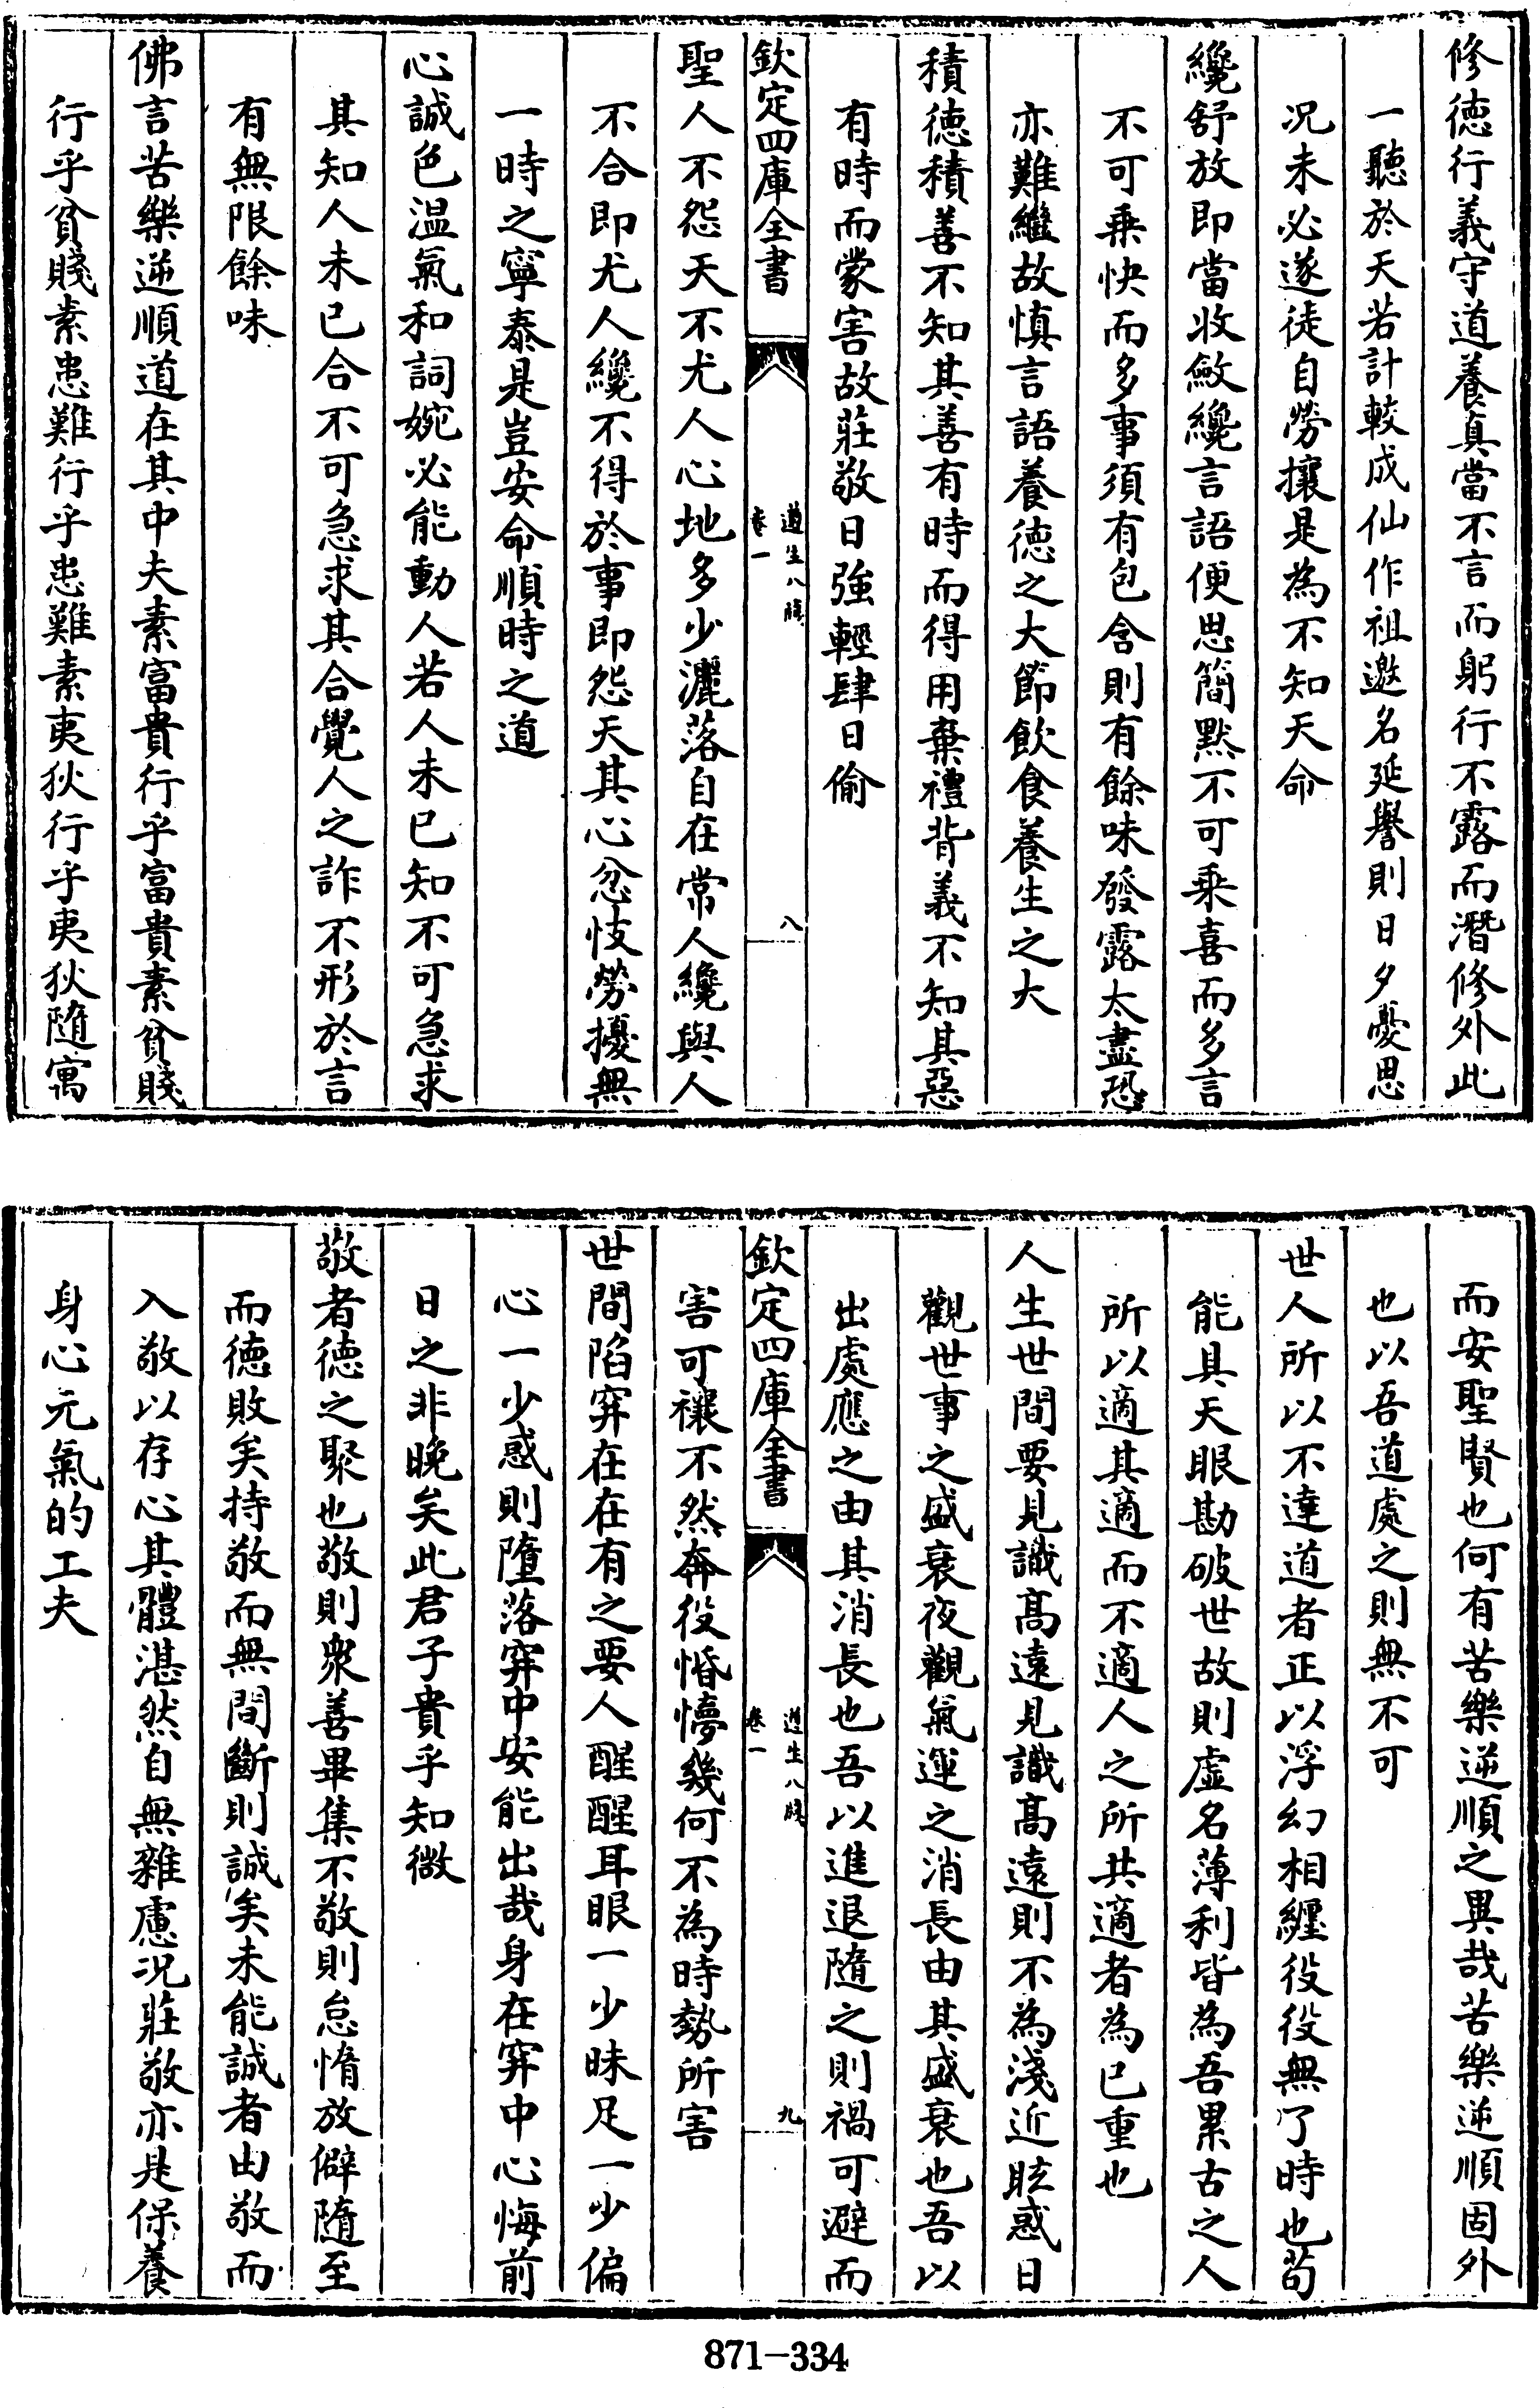 修徳行義守道養真當不言而躬行不露而潛修外此
一聽於天若計較成仙作祖邀名延譽則日夕憂思
况未必遂徒自勞攘是為不知天命
纔舒放即當收斂纔言語便思簡默不可乗喜而多言
不可乗快而多事須有包含則有餘味發露太盡恐
亦難繼故慎言語養徳之大節飲食養生之大
積徳積善不知其善有時而得用棄禮背義不知其惡
有時而蒙害故莊敬日強輕肆日偷
欽定四庫全書
遵生八牋
卷一
八
聖人不怨天不尤人心地多少灑落自在常人纔與人
不合即尤人纔不得於事即怨天其心忿忮勞擾無
一時之寧泰是豈安命順時之道
心誠色温氣和詞婉必能動人若人未已知不可急求
其知人未已合不可急求其合覺人之詐不形於言
有無限餘味
佛言苦樂逆順道在其中夫素富貴行乎富貴素貧賤
行乎貧賤素患難行乎患難素夷狄行乎夷狄隨寓
而安聖賢也何有苦樂逆順之異哉苦樂逆順固外
也以吾道處之則無不可
世人所以不達道者正以浮幻相纒役役無了時也茍
能具天眼勘破世故則虚名薄利皆為吾累古之人
所以適其適而不適人之所共適者為已重也
人生世間要見識髙遠見識髙遠則不為淺近眩惑日
觀世事之盛衰夜觀氣運之消長由其盛衰也吾以
出處應之由其消長也吾以進退隨之則禍可避而
欽定四庫全書
遵生八牋
卷一
九
害可禳不然奔役惛懜幾何不為時勢所害
世間陷穽在在有之要人醒醒耳眼一少昧足一少偏
心一少惑則墮落穽中安能出哉身在穽中心悔前
日之非晚矣此君子貴乎知微
敬者徳之聚也敬則衆善畢集不敬則怠惰放僻隨至
而徳敗矣持敬而無間斷則誠矣未能誠者由敬而
入敬以存心其體湛然自無雜慮况莊敬亦是保養
身心元氣的工夫
871-334